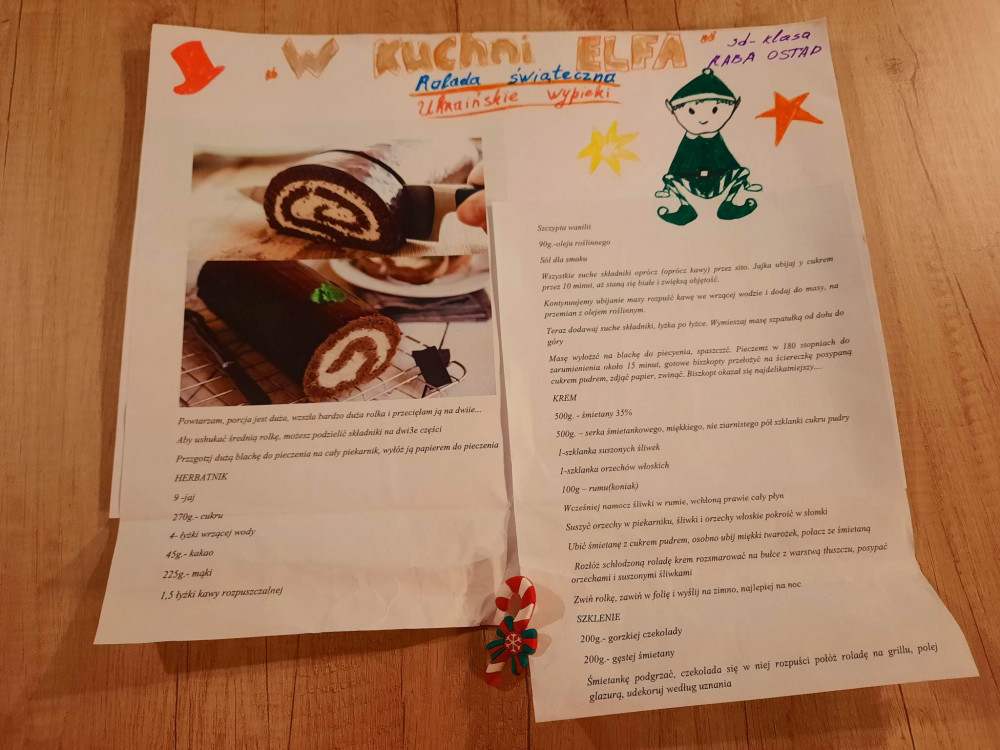 "W KUCHNI ELFA"
Rolada świąteczna
Ukraińskie wypieki
3d-klasa
RABA OSTAP
Powtarzam, porcja jest duża, wzszła bardzo duża rolka i przecięłam ją na dwiie...
Aby ushukać średnią rolkę, możesz podzielić składniki na dwi3e części
Przzgotzj dużą blachę do pieczenia na cały piekarnik, wyłóż ją papierem do pieczenia
HERBATNIK
9 -jaj
270g.- cukru
4- łyżki wrzącej wody
45g.- kakao
225g.- mąki
1,5 łyżki kawy rozpuszczalnej
Szczypta wanilii
90g.-oleju roślinnego
Sól dla smaku
Wszystkie suche składniki oprócz (oprócz kawy) przez sito. Jajka ubijaj y cukrem
przez 10 minut, aż staną się białe i zwiększą objętość.
Kontynuujemy ubijanie masy rozpuść kawę we wrzącej wodzie i dodaj do masy, na
przemian z olejem roślinnym.
Teraz dodawaj suche składniki, łyżka po łyżce. Wymieszaj masę szpatułką od dołu do
góry
Masę wyłożźć na blachę do piecyenia, spaszczźć. Pieczemz w 180 stopniach do
zarumienienia około 15 minut, gotowe biszkopty przełożyć na ściereczkę posypaną
cukrem pudrem, zdjąć papier, zwinąć. Biszkopt okazał się najdelikatniejszy....
KREM
500g. - śmietany 35%
500g. – serka śmietankowego, miękkiego, nie ziarnistego pół szklanki cukru pudry
1-szklanka suszonych śliwek
1-szklanka orzechów włoskich
100g – rumu(koniak)
Wcześniej namocz śliwki w rumie, wchłoną prawie cały płyn
Suszyć orzechy w piekarniku, śliwki i orzechy włoskie pokroić w słomki
Ubić śmietanę z cukrem pudrem, osobno ubij miękki twarożek, połącz ze śmietaną
Rozłóż schłodzoną roladę krem rozsmarować na bułce z warstwą tłuszczu, posypać
orzechami i suszonymi śliwkami
Zwiń rolkę, zawiń w folię i wyślij na zimno, najlepiej na noc
SZKLENIE
200g.- gorzkiej czekolady
200g.- gęstej śmietany
Śmietankę podgrzać, czekolada się w niej rozpuści połóż roladę na grillu, polej
glazurą, udekoruj według uznania